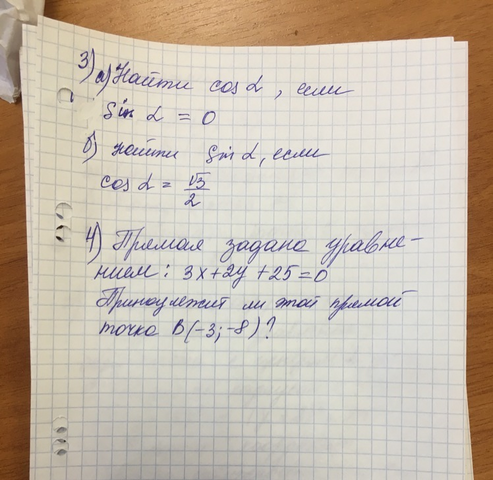 3) а) Найти cos α, если
Sin α = 0
б) Найти Sin α, если
cos α = √3/2
4) Прямая задана уравне-
нием: 3x+2y+25=0
Принадлежит ли этой прямой
точка B(-3;-8)?